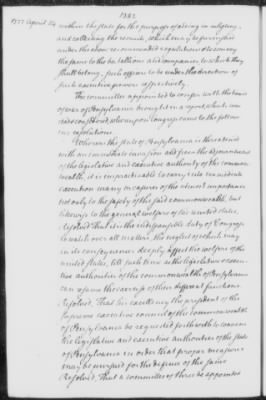 1382
1777 April 14
within the state for the purpose of aiding in
and collecting the recruits, which may be furnished
under the above recommended regulations & to convey
the same to the battalions and companies to which they
shall belong, such officers to be under the direction of
such executive powers respectively.
The committee appointed to confer with the
of war of Pensylvania brought in a report, which was
read & considered, whereupon Congress came to the following
resolutions.
Whereas the state of Pensylvania is threatened
with an immediate invasion and from the
of the legislative and executive authority of the common
wealth, it is impracticable to carry into immediate
execution many measures of the utmost importance
not only to the safety of the said commonwealth, but
likewise to the general welfare of the united states,
Resolved That it is the indispensible duty of Congress
to watch over all matters, the neglect of which may
in its consequences deeply affect the welfare of the
united states, till such time as the legislative & execu
tive authorities of the commonwealth of Pensylvania
can resume the exercise of their different functions.
Resolved, That his excellency the president of the
supreme executive council of the commonwealth
of Pensylvania be requested forthwith to convene
the legislative and executive authorities of the state
of Pensylvania in order that proper measures
may be pursued for the defence of the same
Resolved, That a committee of three be appointed